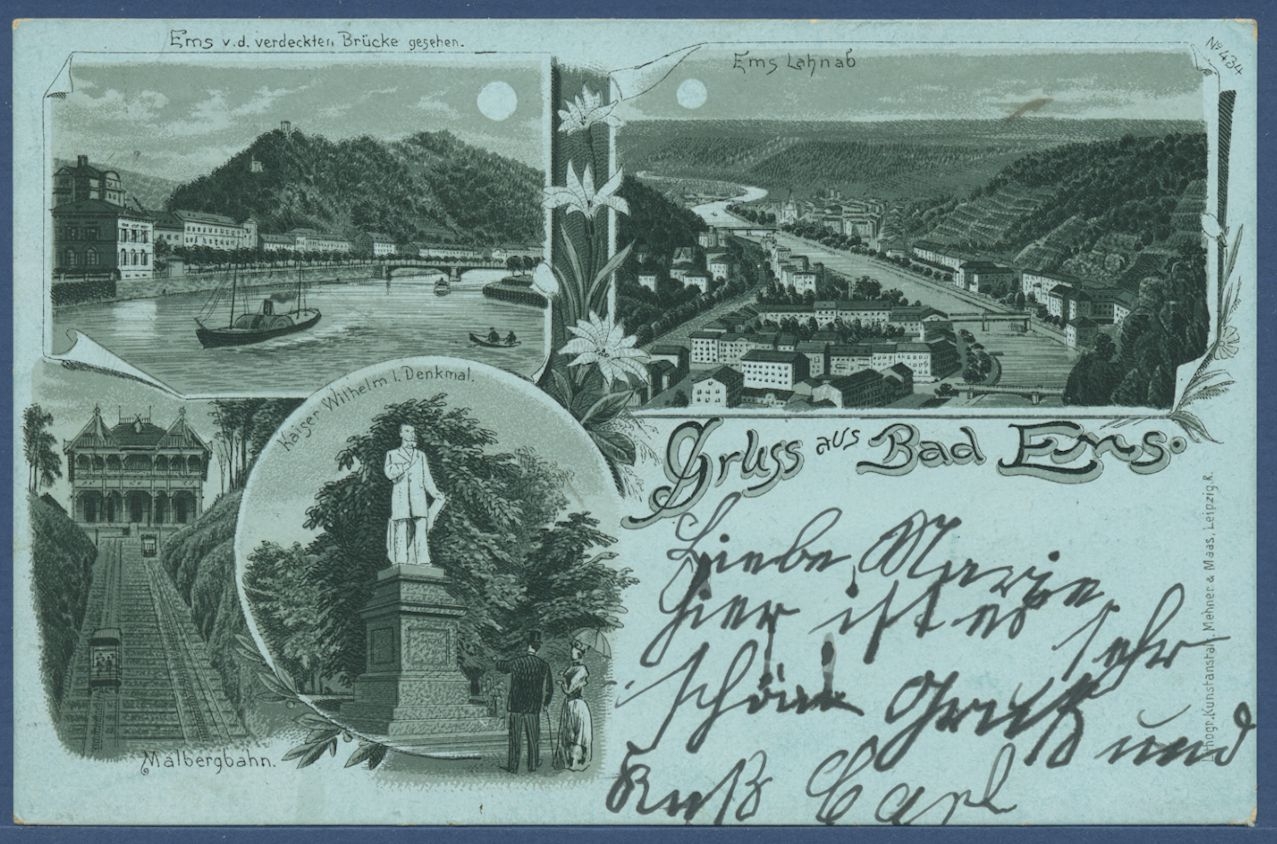 Ems v. d. verdeckten Brücke gesehen.
Ems Lahnab
No 434
Kaiser Wilhelm I. Denkmal.
Malbergbahn.
Gruss aus Bad Ems.
Liebe Marie
hier ist es sehr
schön Gruß und
Kuß Carl
Lithogr. Kunstanstalt, Mehner & Maas, Leipzig. R.